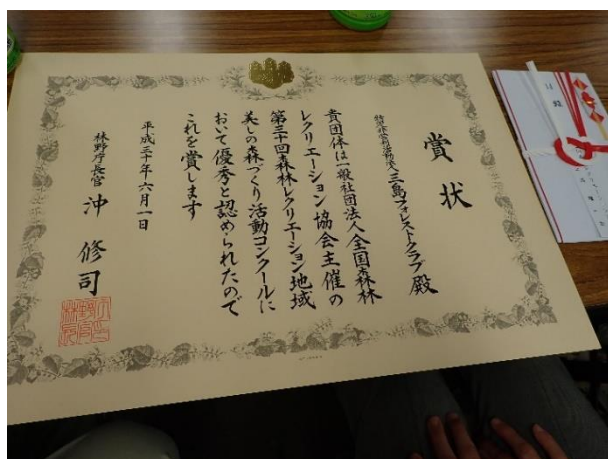 賞状
特定非営利活動法人三島フォレストクラブ殿
貴団体は一般社団法人全国森林
レクリエーション協会主催の
第三十回森林レクリエーション地域
美しの森づくり活動コンクールに
おいて優秀と認められたので
これを賞します
平成三十年六月一日
林野庁長官 沖 修司
目録